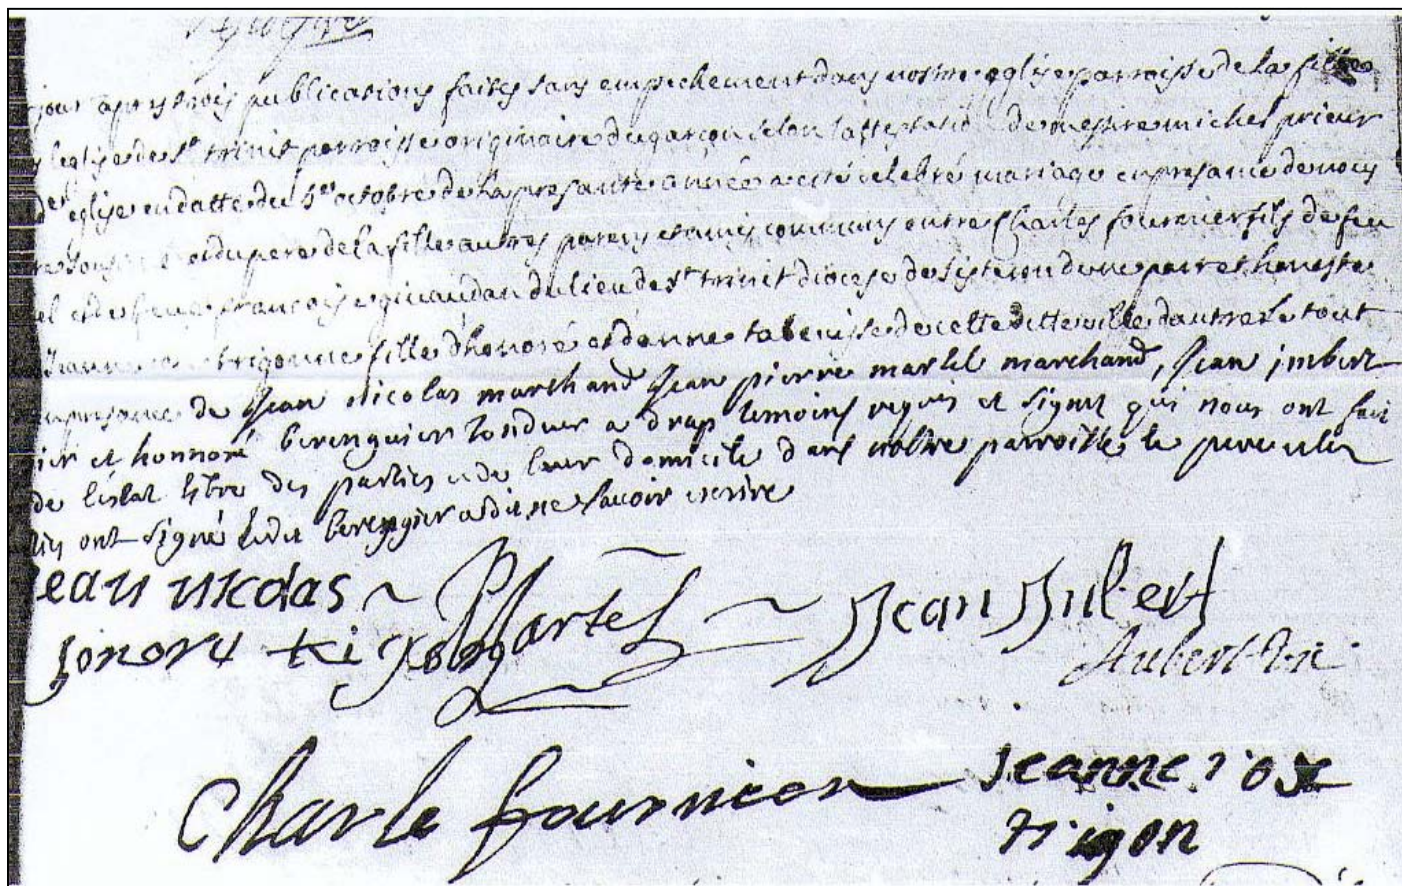 jour apres trois publications faites sans empechement dans nostre eglise parroisse de la fille
leglise de st trinit parroisse originaire du garçon selon lattestatio de messire michel prieur
eglise en datte du 5e octobre de la presante année a esté celebré mariage en presance de nous
et du pere de la fille autres parens et amis communs entre Charles fournier fils de feu
el et de feue françoise giraudan du lieu de st trinit diocese de sisteron dune part et honeste
Jeanne trigonne fille dhonoré et danne tabeuisse de cette ditte ville dautre le tout
en presance de Jean nicolas marchand Jean pierre martel marchand, Jean imbert
et honnoré berenguier tondeur a drap temoins requis et signés qui nous ont fait
de lestat libre des parties et de leur domicile dans nostre parroisse le pere et les
ont signé ledit berengier a dit ne savoir escrire
jean nicolas Martel Jean Inbert
honore trigon Aubert vic
Charle fournier jeanne rose
trigon